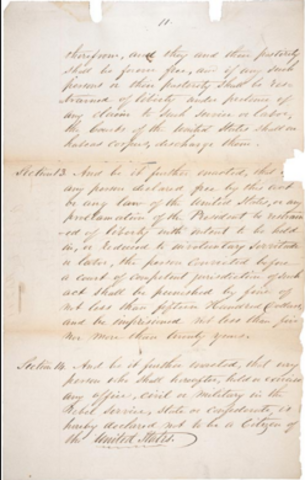 11.
therefrom, and they and their posterity
shall be forever free, and if any such
persons or their posterity shall be res-
trained of liberty under pretence of
any claim to such service or labor,
the Courts of the United States shall on
habeas corpus, discharge them.
Section 13. And be it further enacted, that if
any person declared free by this act
or any law of the United States, or any
proclamation of the President be restrain-
ed of liberty with intent to be held
in, or reduced to involuntary servitude
or labor, the person convicted before
a court of competent jurisdiction of such
act shall be punished by fine of
not less than fifteen Hundred Dollars
and be imprisoned not less than five
nor more than twenty years.
Section 14. And be it further enacted, that every
person who shall hereafter, hold or exercise
any office, civil or military in the
Rebel service, state or confederate, is
hereby declared not to be a Citizen of
the United States.